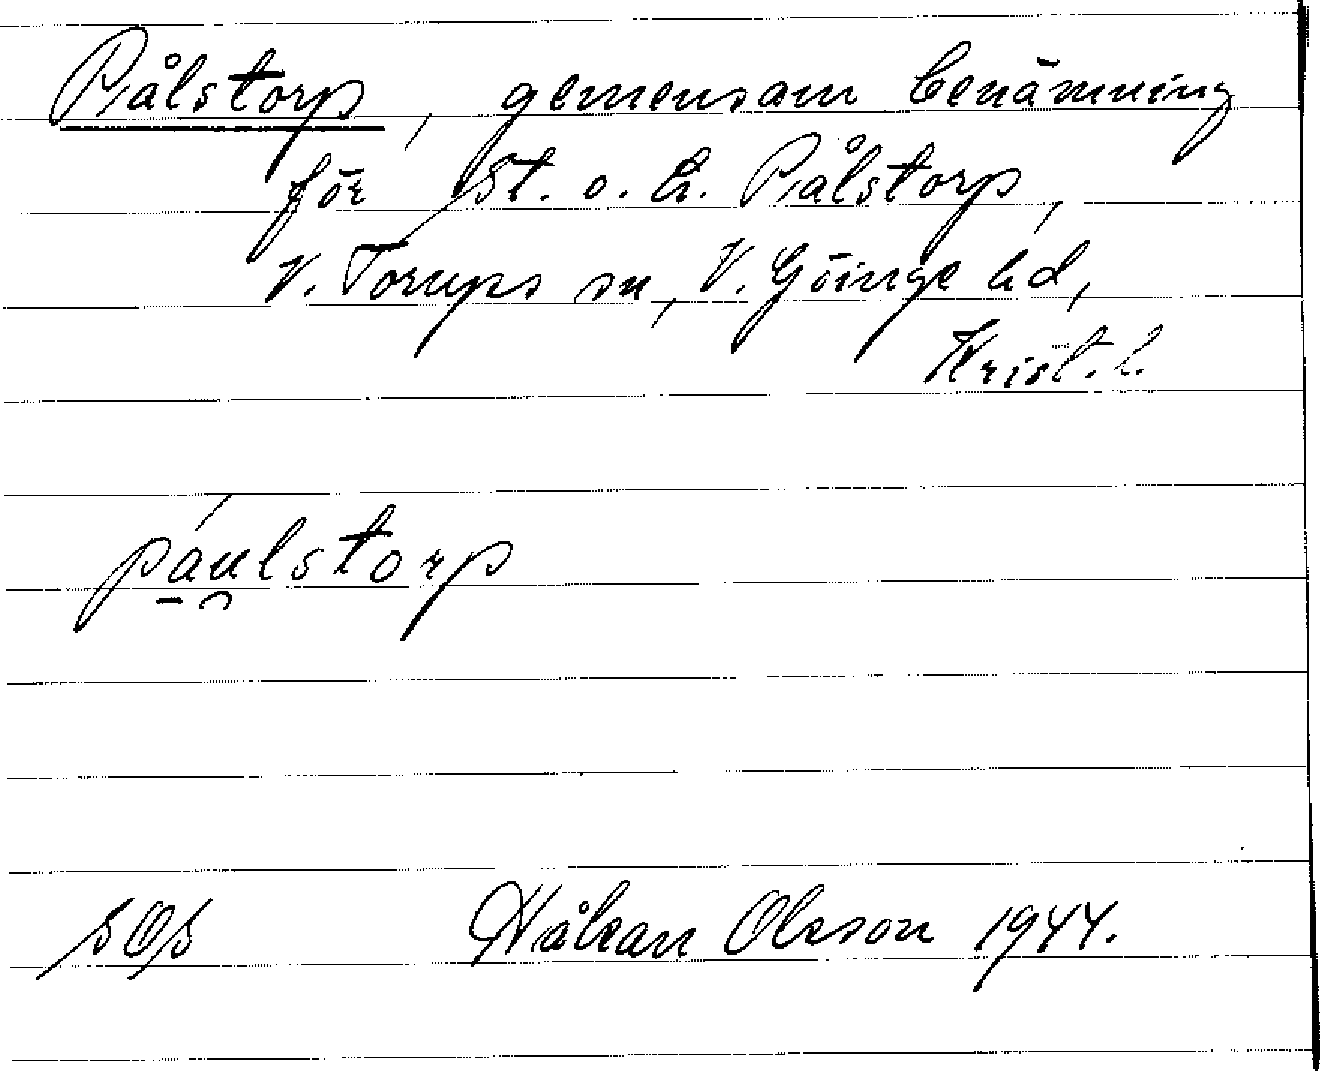 Pålstorp, gemensam benämning
för St. o. L. Pålstorp,
V. Torups sn, V. Göinge hd,
Krist. l.
páulstorp
SOS Håkan Olsson 1944.